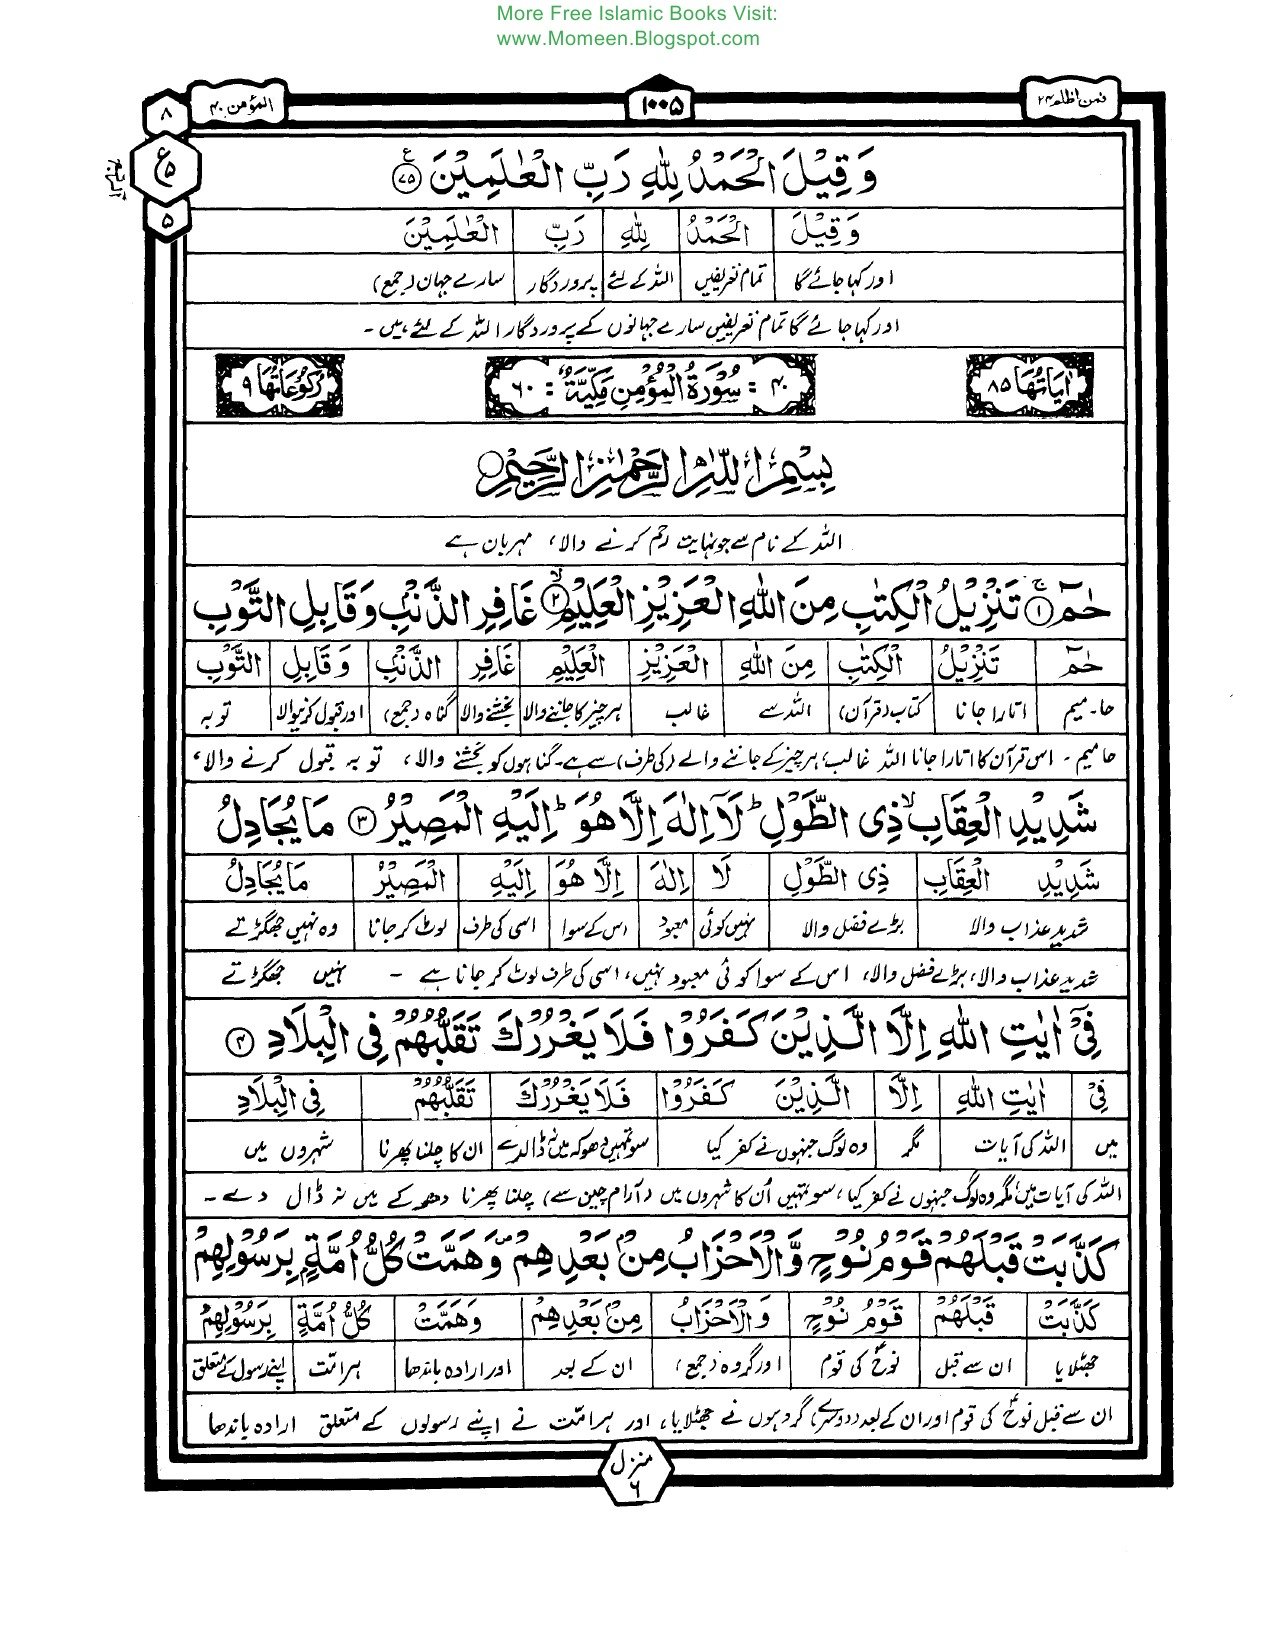 More Free Islamic Books Visit:
www.Momeen.Blogspot.com
فمن اظلم ۲۴
۱۰۰۵
المؤمن ۴۰
۸
ع ۵
۵
وَقِيْلَ الْحَمْدُ لِلّٰهِ رَبِّ الْعٰلَمِيْنَ ﴿۷۵﴾
وَقِيْلَ الْحَمْدُ لِلّٰهِ رَبِّ الْعٰلَمِيْنَ
اور کہا جائے گا تمام تعریفیں اللہ کے لئے پروردگار سارے جہان (جمع)
اور کہا جائے گا تمام تعریفیں سارے جہانوں کے پروردگار اللہ کے لئے ہیں۔
اٰيَاتُهَا ۸۵ ۴۰ = سُوْرَةُ الْمُؤْمِنِ مَكِّيَّةٌ = ۶۰ رُكُوْعَاتُهَا ۹
بِسْمِ اللّٰهِ الرَّحْمٰنِ الرَّحِيْمِ
اللہ کے نام سے جو نہایت رحم کرنے والا، مہربان ہے
حٰمٓ ﴿۱﴾ۚ تَنْزِيْلُ الْكِتٰبِ مِنَ اللّٰهِ الْعَزِيْزِ الْعَلِيْمِ ﴿۲﴾ۙ غَافِرِ الذَّنْۢبِ وَقَابِلِ التَّوْبِ
حٰمٓ تَنْزِيْلُ الْكِتٰبِ مِنَ اللّٰهِ الْعَزِيْزِ الْعَلِيْمِ غَافِرِ الذَّنْۢبِ وَقَابِلِ التَّوْبِ
حا۔میم اتارا جانا کتاب (قرآن) اللہ سے غالب ہر چیز کا جاننے والا بخشنے والا گناہ (جمع) اور قبول کرنیوالا توبہ
حامیم۔ اس قرآن کا اتارا جانا اللہ غالب، ہر چیز کے جاننے والے (کی طرف) سے ہے۔ گناہوں کو بخشنے والا، توبہ قبول کرنے والا،
شَدِيْدِ الْعِقَابِۙ ذِى الطَّوْلِؕ لَاۤ اِلٰهَ اِلَّا هُوَؕ اِلَيْهِ الْمَصِيْرُ ﴿۳﴾ مَا يُجَادِلُ
شَدِيْدِ الْعِقَابِ ذِى الطَّوْلِ لَا اِلٰهَ اِلَّا هُوَ اِلَيْهِ الْمَصِيْرُ مَا يُجَادِلُ
شدید عذاب والا بڑے فضل والا نہیں کوئی معبود اس کے سوا اسی کی طرف لوٹ کر جانا وہ نہیں جھگڑتے
شدید عذاب والا، بڑے فضل والا، اس کے سوا کوئی معبود نہیں، اسی کی طرف لوٹ کر جانا ہے۔ نہیں جھگڑتے
فِىْۤ اٰيٰتِ اللّٰهِ اِلَّا الَّذِيْنَ كَفَرُوْا فَلَا يَغْرُرْكَ تَقَلُّبُهُمْ فِى الْبِلَادِ ﴿۴﴾
فِىْۤ اٰيٰتِ اللّٰهِ اِلَّا الَّذِيْنَ كَفَرُوْا فَلَا يَغْرُرْكَ تَقَلُّبُهُمْ فِى الْبِلَادِ
میں اللہ کی آیات مگر وہ لوگ جنہوں نے کفر کیا سو تمہیں دھوکہ میں نہ ڈالدے ان کا چلنا پھرنا شہروں میں
اللہ کی آیات میں مگر وہ لوگ جنہوں نے کفر کیا، سو تمہیں اُن کا شہروں میں (آرام چین سے) چلنا پھرنا دھوکے میں نہ ڈال دے۔
كَذَّبَتْ قَبْلَهُمْ قَوْمُ نُوْحٍ وَّالْاَحْزَابُ مِنْۢ بَعْدِهِمْ وَهَمَّتْ كُلُّ اُمَّةٍۭ بِرَسُوْلِهِمْ
كَذَّبَتْ قَبْلَهُمْ قَوْمُ نُوْحٍ وَالْاَحْزَابُ مِنْۢ بَعْدِهِمْ وَهَمَّتْ كُلُّ اُمَّةٍ بِرَسُوْلِهِمْ
جھٹلایا ان سے قبل نوحؑ کی قوم اور گروہ (جمع) ان کے بعد اور ارادہ باندھا ہر امت اپنے رسول کے متعلق
ان سے قبل نوحؑ کی قوم اور ان کے بعد (دوسرے) گروہوں نے جھٹلایا، اور ہر امت نے اپنے رسولوں کے متعلق ارادہ باندھا
منزل ۶